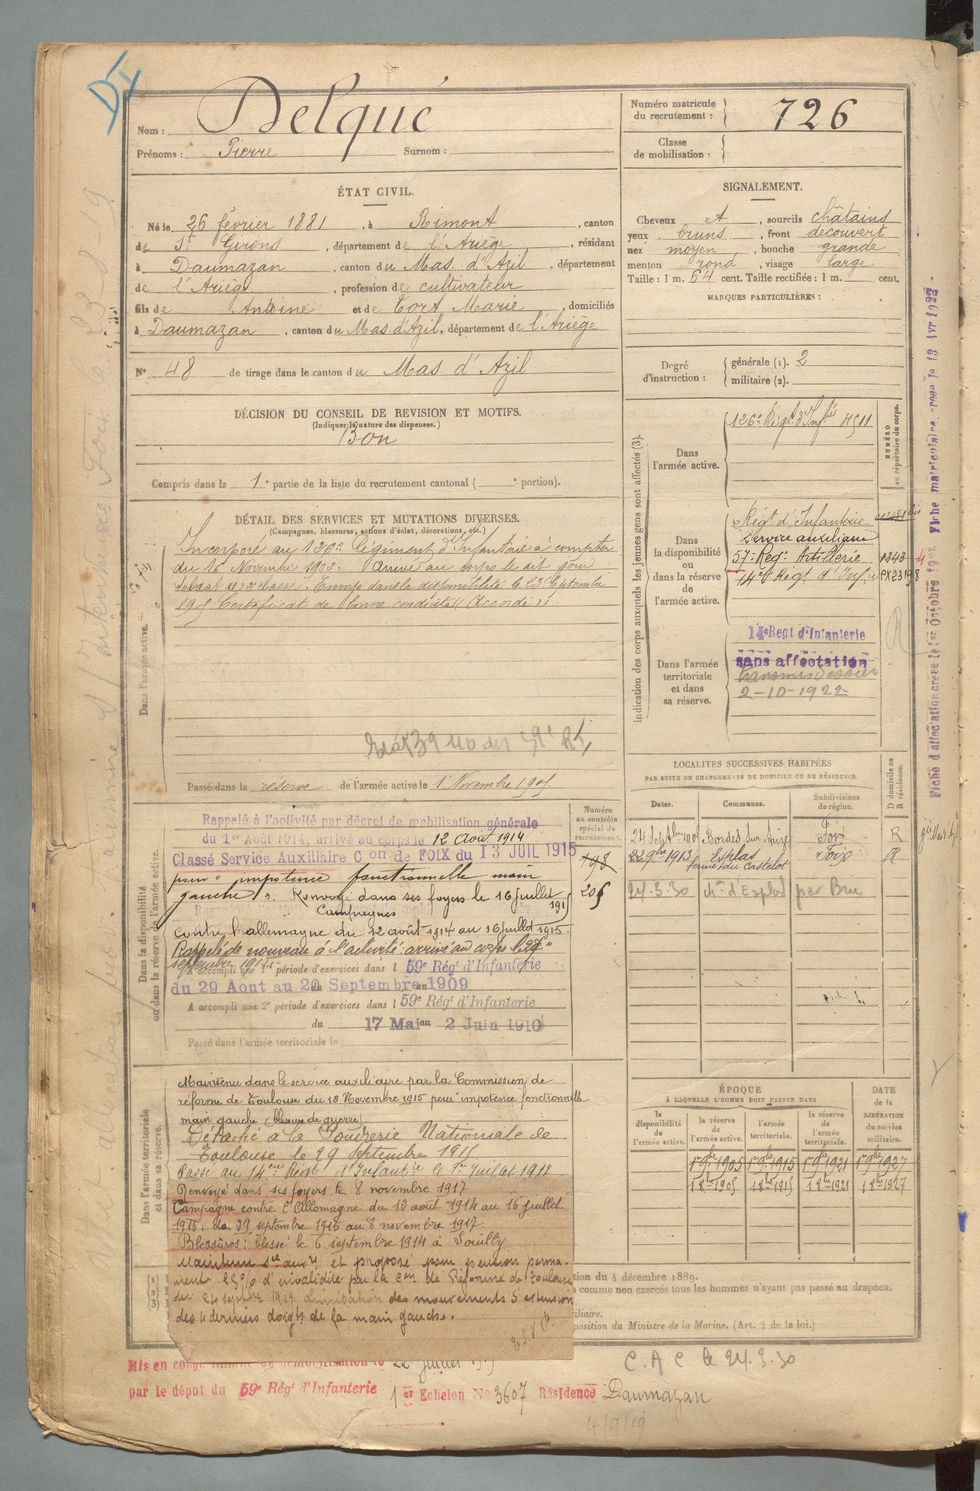 Nom : Delqué
Prénoms : Pierre Surnom :
Numéro matricule du recrutement : 726
Classe de mobilisation :
ÉTAT CIVIL.
Né le 26 février 1881, à Rimont, canton
de St Girons, département de l'Ariège, résidant
à Daumazan, canton du Mas d'Azil, département
de l'Ariège, profession de cultivateur
fils de Antoine et de Tort Marie, domiciliés
à Daumazan, canton du Mas d'Azil, département de l'Ariège
N° 48 de tirage dans le canton du Mas d'Azil
SIGNALEMENT.
Cheveux et, sourcils châtains
yeux bruns, front découvert
nez moyen, bouche grande
menton rond, visage large
Taille : 1 m. 64 cent. Taille rectifiée : 1 m. cent.
MARQUES PARTICULIÈRES :
Degré d'instruction : générale (1). 2
militaire (2).
DÉCISION DU CONSEIL DE REVISION ET MOTIFS.
(Indiquer la nature des dispenses.)
Bon
Compris dans la 1e partie de la liste du recrutement cantonal ( e portion).
DÉTAIL DES SERVICES ET MUTATIONS DIVERSES.
(Campagnes, blessures, actions d'éclat, décorations, etc.)
Incorporé au 126e Régiment d'Infanterie à compter
du 16 Novembre 1902. Arrivé au corps le dit jour
soldat de 2e classe. Envoyé dans la disponibilité le 23 Septembre
1905 Certificat de bonne conduite "Accordé".
Dans l'armée active.
Passé dans la réserve de l'armée active le 1 Novembre 1905
Indication des corps auxquels les jeunes gens sont affectés (3).
NUMÉRO au répertoire du corps.
Dans l'armée active.
126e Régt d'Infie 4511
Dans la disponibilité ou dans la réserve de l'armée active.
Régt d'Infanterie
Service auxiliaire
57e Regt Artillerie
14e Régt d'Infie
Dans l'armée territoriale et dans sa réserve.
14e Regt d'Infanterie
sans affectation
2-10-1922
Fiche d'affectation créée le 1er Octobre Fiche matriculaire créée le 13 Avr 1922
LOCALITÉS SUCCESSIVES HABITÉES
PAR SUITE DE CHANGEMENTS DE DOMICILE OU DE RÉSIDENCE.
Dates. Communes. Subdivisions de région. D domicile ou R résidence.
24 Septbre 1905 Bordes sur Arize Foix R
22 9bre 1913 Esplas Foix R
24.3.30
Dans la disponibilité ou dans la réserve de l'armée active.
Numéro au contrôle spécial du recrutement.
198
206
Rappelé à l'activité par décret de mobilisation générale
du 1er Août 1914, arrivé au corps le 12 Août 1914
Classé Service Auxiliaire Con de FOIX du 13 JUIL 1915
pour "impotence fonctionnelle main
gauche". Renvoyé dans ses foyers le 16 juillet 1915
Campagnes
contre l'allemagne du 12 août 1914 au 16 juillet 1915.
Rappelé de nouveau à l'activité arrivé au corps le 29
septembre 1915
A accompli une 1re période d'exercices dans l 59e Régt d'Infanterie
du 29 Aout au 20 Septembre 1909
A accompli une 2e période d'exercices dans l 59e Régt d'Infanterie
du 17 Mai au 2 Juin 1910
Passé dans l'armée territoriale le
Dans l'armée territoriale et dans sa réserve.
Maintenu dans le service auxiliaire par la Commission de
réforme de Toulouse du 18 Novembre 1915 pour "impotence fonctionnelle
main gauche (blessure de guerre)
Détaché à la Poudrerie Nationale de
Toulouse le 29 septembre 1915
Passé au 14eme Régt d'Infantie le 1er Juillet 1917
Renvoyé dans ses foyers le 8 novembre 1917
Campagne contre l'Allemagne du 12 août 1914 au 16 juillet
1915. du 29 septembre 1915 au 8 novembre 1917.
Blessures : blessé le 6 septembre 1914 à Souilly
Maintenu sce auxre et proposé pour pension perma-
nente 25% d'invalidité par la Con de Réforme de Toulouse
du 24 septbre 1919 limitation des mouvements d'extension
des 4 derniers doigts de la main gauche.
ÉPOQUE
À LAQUELLE L'HOMME DOIT PASSER DANS
la disponibilité de l'armée active. la réserve de l'armée active. l'armée territoriale. la réserve de l'armée territoriale. DATE de la LIBÉRATION du service militaire.
1er 9bre 1905 1er 9bre 1915 1er 9bre 1921 1er 9bre 1927
1 8bre 1905 1 8bre 1915 1 8bre 1921 1 8bre 1927
tion du 4 décembre 1889.
comme non exercés tous les hommes n'ayant pas passé au drapeau.
iliaire.
position du Ministre de la Marine. (Art. 5 de la loi.)
Mis en congé illimité de démobilisation le 22 juillet
par le dépot du 59e Régt d'Infanterie 1er Echelon No 3607 Résidence Daumazan
C.A.C le 24.3.30
4/9/19